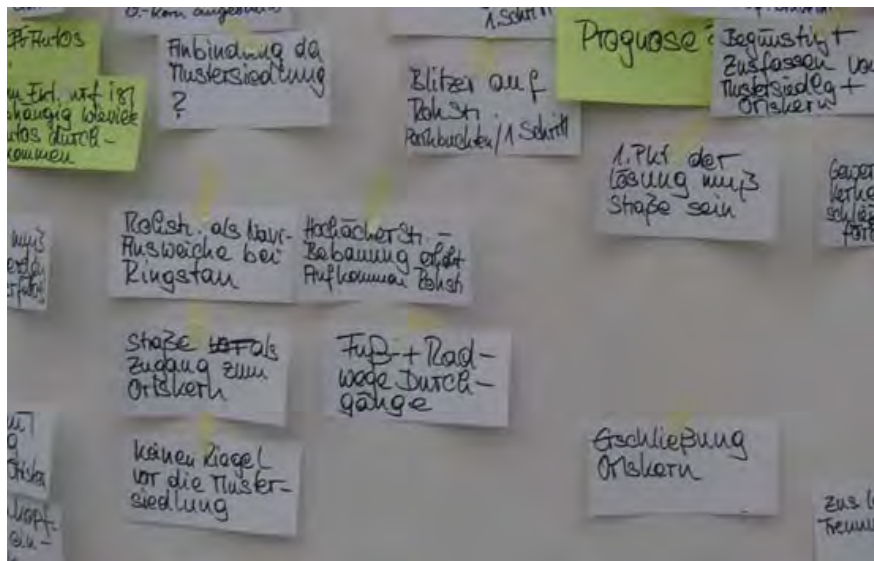 1. Schritt
Autos
Anbindung da
Mustersiedlung
?
Blitzer auf
Rohstr.
Parkbuchten/1 Schritt
Prognose?
Begünstigt
Zusfassen
Mustersiedlg +
Ortskern
durch-
kommen
1. Pkt der
Lösung muß
Straße sein
muß
Rohstr. als Navi-
Ausweiche bei
Ringstau
Hochäckerstr. -
Bebauung erhöht
Aufkommen Rohstr
Straße als
Zugang zum
Ortskern
Fuß- + Rad-
wege Durch-
gänge
keinen Riegel
vor die Muster-
siedlung
Erschließung
Ortskern